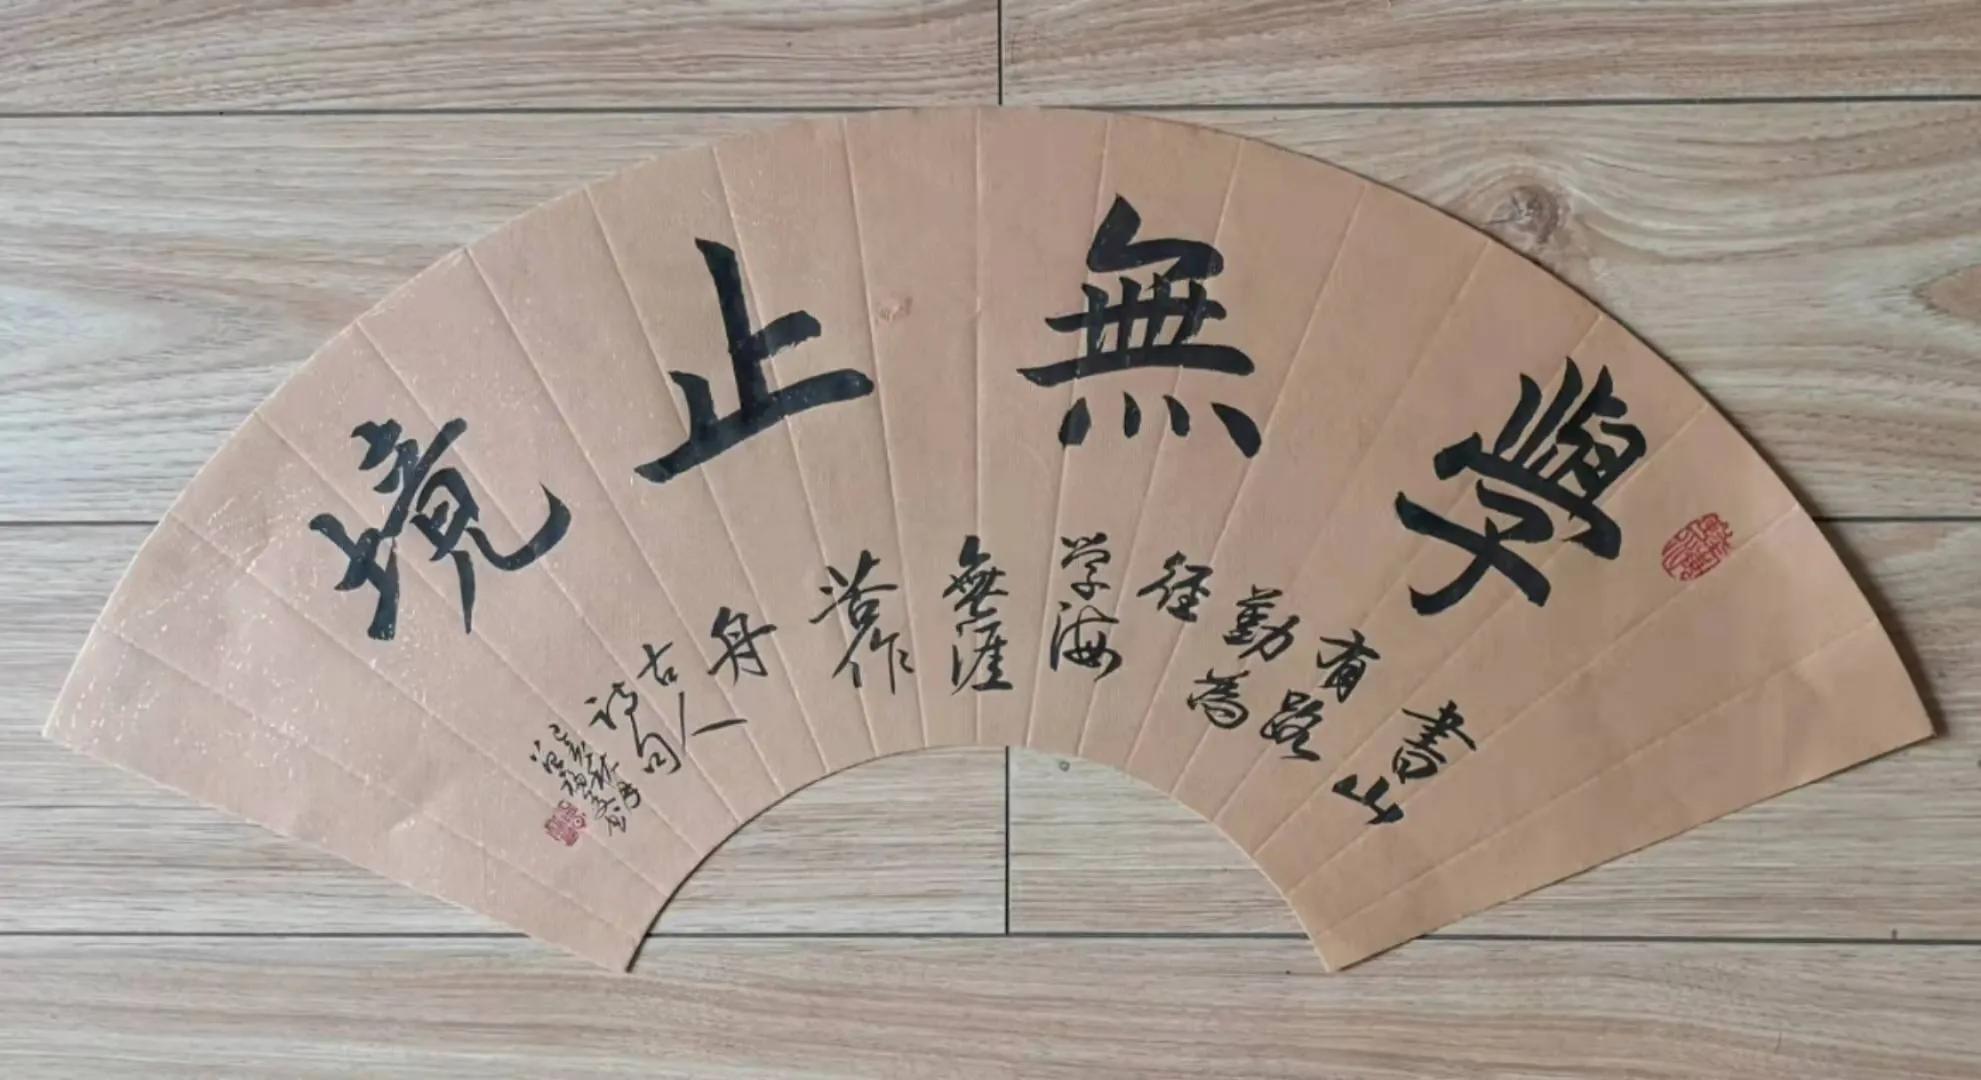 學無止境
書山
有路
勤為
径
学海
無涯
苦作
舟
古人
詩句